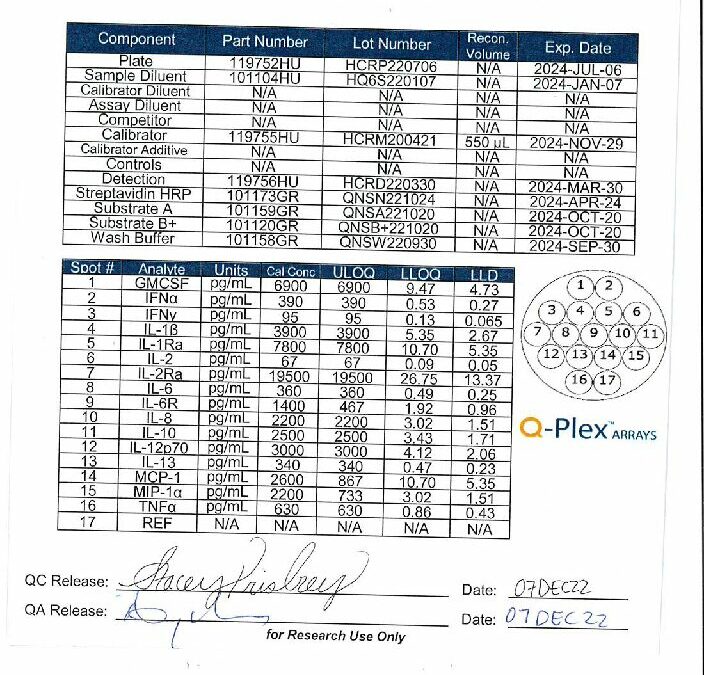 Component Part Number Lot Number Recon. Volume Exp. Date
Plate 119752HU HCRP220706 N/A 2024-JUL-06
Sample Diluent 101104HU HQ6S220107 N/A 2024-JAN-07
Calibrator Diluent N/A N/A N/A N/A
Assay Diluent N/A N/A N/A N/A
Competitor N/A N/A N/A N/A
Calibrator 119755HU HCRM200421 550 µL 2024-NOV-29
Calibrator Additive N/A N/A N/A N/A
Controls N/A N/A N/A N/A
Detection 119756HU HCRD220330 N/A 2024-MAR-30
Streptavidin HRP 101173GR QNSN221024 N/A 2024-APR-24
Substrate A 101159GR QNSA221020 N/A 2024-OCT-20
Substrate B+ 101120GR QNSB+221020 N/A 2024-OCT-20
Wash Buffer 101158GR QNSW220930 N/A 2024-SEP-30
Spot # Analyte Units Cal Conc ULOQ LLOQ LLD
1 GMCSF pg/mL 6900 6900 9.47 4.73
2 IFNα pg/mL 390 390 0.53 0.27
3 IFNγ pg/mL 95 95 0.13 0.065
4 IL-1ß pg/mL 3900 3900 5.35 2.67
5 IL-1Ra pg/mL 7800 7800 10.70 5.35
6 IL-2 pg/mL 67 67 0.09 0.05
7 IL-2Ra pg/mL 19500 19500 26.75 13.37
8 IL-6 pg/mL 360 360 0.49 0.25
9 IL-6R pg/mL 1400 467 1.92 0.96
10 IL-8 pg/mL 2200 2200 3.02 1.51
11 IL-10 pg/mL 2500 2500 3.43 1.71
12 IL-12p70 pg/mL 3000 3000 4.12 2.06
13 IL-13 pg/mL 340 340 0.47 0.23
14 MCP-1 pg/mL 2600 867 10.70 5.35
15 MIP-1α pg/mL 2200 733 3.02 1.51
16 TNFα pg/mL 630 630 0.86 0.43
17 REF N/A N/A N/A N/A N/A
1 2
3 4 5 6
7 8 9 10 11
12 13 14 15
16 17
Q-Plex™ ARRAYS
QC Release: Stacey Date: 07DEC22
QA Release: Date: 07DEC22
for Research Use Only